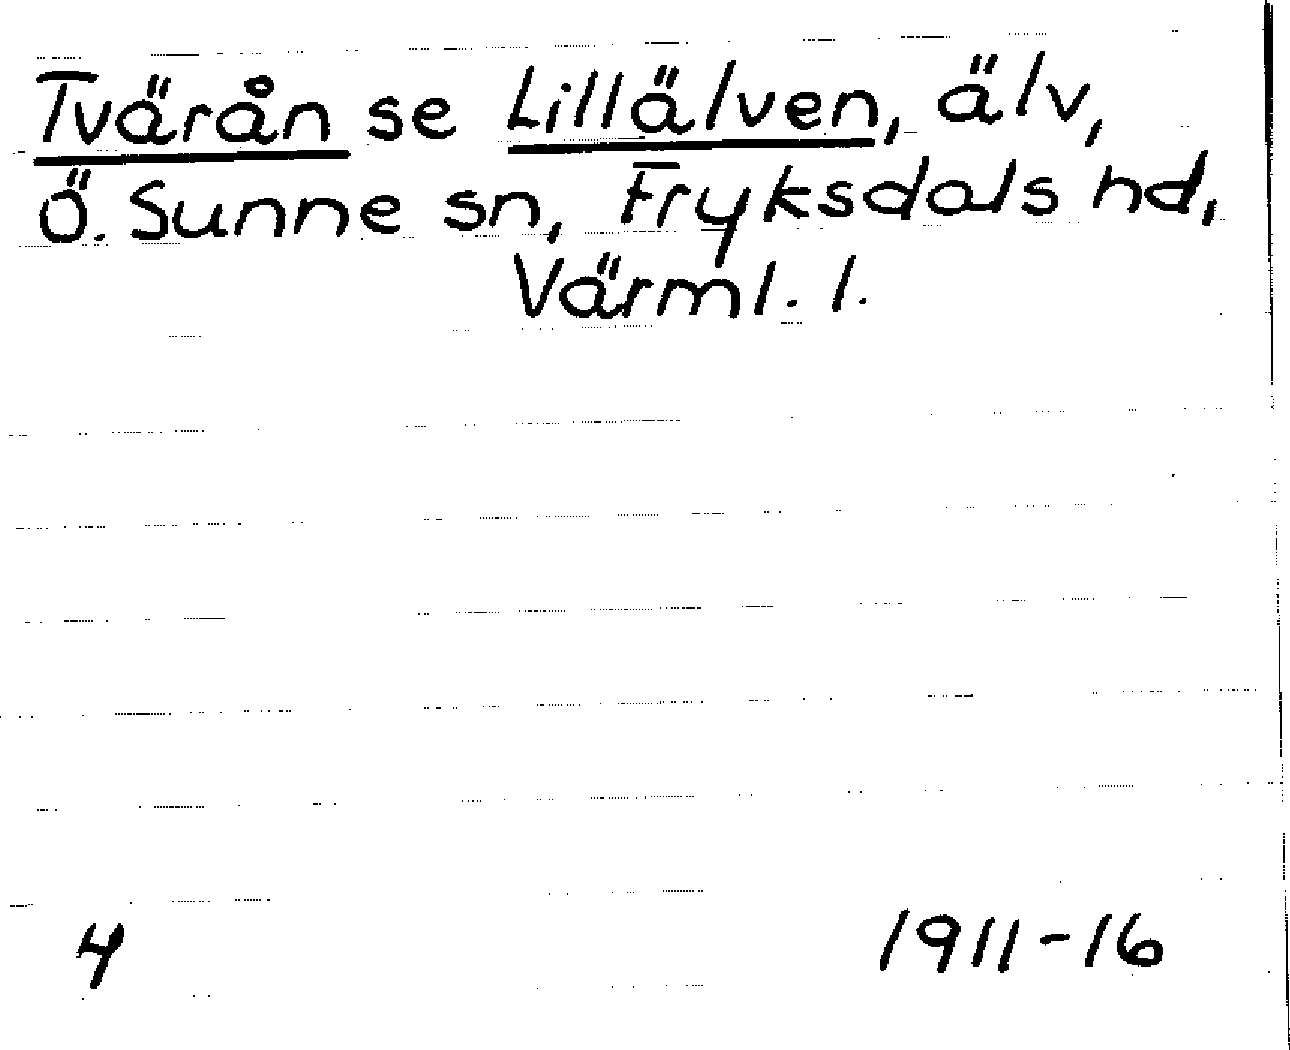 Tvärån se Lillälven, älv,
Ö. Sunne sn, Fryksdals hd,
Värml. l.
4 1911-16